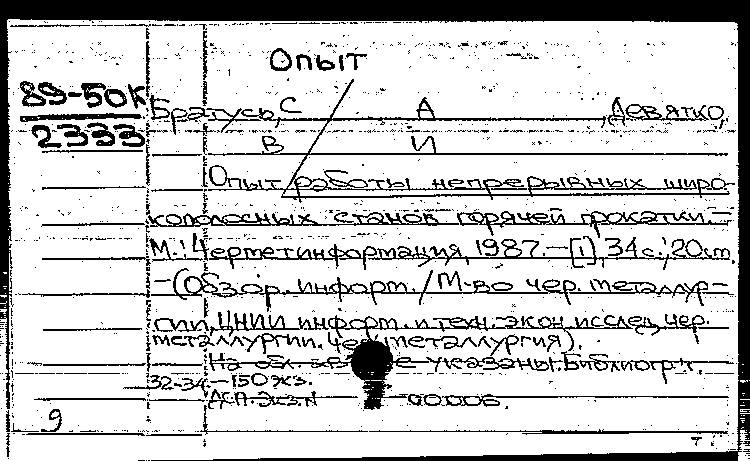 Опыт
89-50К
2333
Братусь, С А , Девятко,
В И
Опыт работы непрерывных широ-
кополосных станов горячей прокатки.—
М.: Черметинформация, 1987.—[1], 34 с.; 20 см.
—(Обзор. информ./М-во чер. металлур-
гии, ЦНИИ информ. и техн.-экон. исслед. чер.
металлургии. Чер. металлургия).
На обл. указаны. Библиогр.: с.
32-34.—150 экз.
ДСП. Экз. N 00006.
9